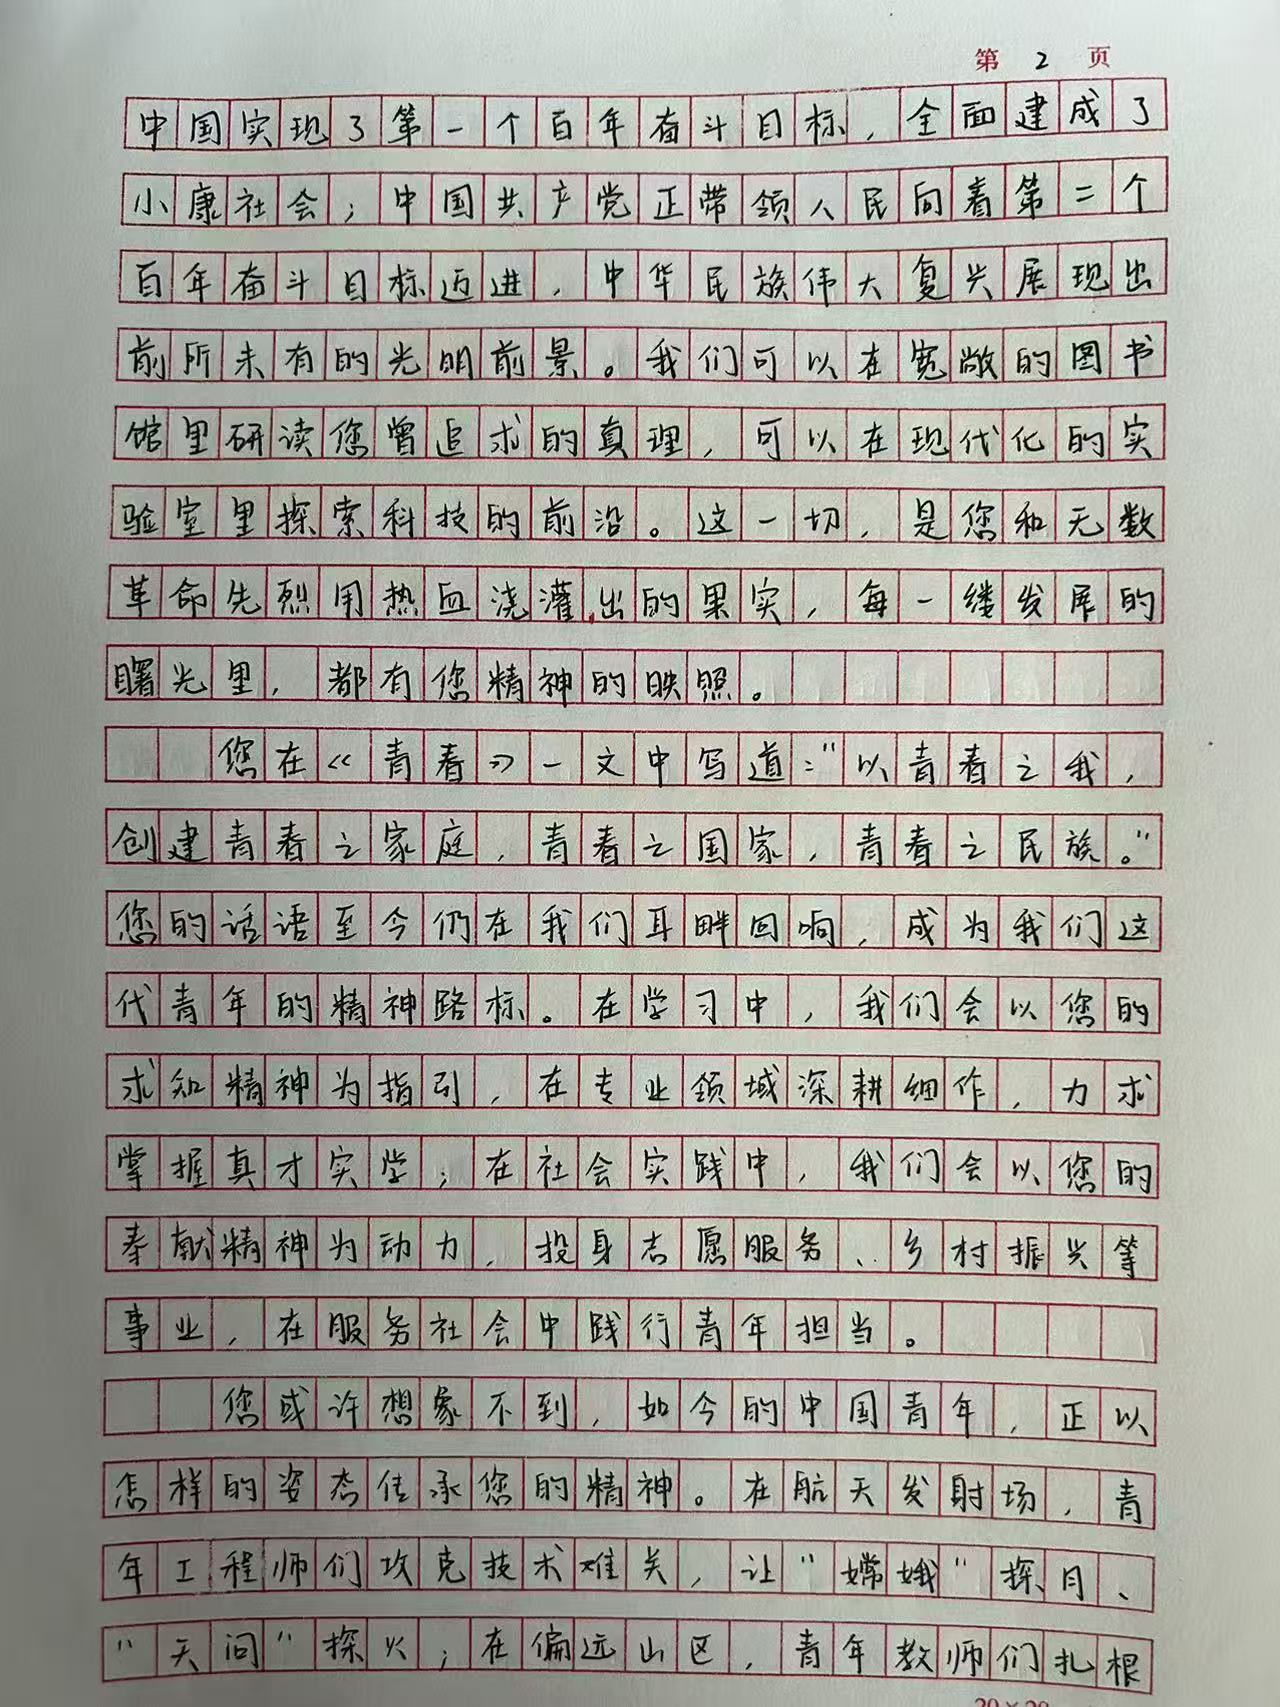 第 2 页
中国实现了第一个百年奋斗目标，全面建成了
小康社会；中国共产党正带领人民向着第二个
百年奋斗目标迈进，中华民族伟大复兴展现出
前所未有的光明前景。我们可以在宽敞的图书
馆里研读您曾追求的真理，可以在现代化的实
验室里探索科技的前沿。这一切，是您和无数
革命先烈用热血浇灌出的果实，每一缕发展的
曙光里，都有您精神的映照。
您在《青春》一文中写道：“以青春之我，
创建青春之家庭，青春之国家，青春之民族。”
您的话语至今仍在我们耳畔回响，成为我们这
代青年的精神路标。在学习中，我们会以您的
求知精神为指引，在专业领域深耕细作，力求
掌握真才实学；在社会实践中，我们会以您的
奉献精神为动力，投身志愿服务、乡村振兴等
事业，在服务社会中践行青年担当。
您或许想象不到，如今的中国青年，正以
怎样的姿态传承您的精神。在航天发射场，青
年工程师们攻克技术难关，让“嫦娥”探月、
“天问”探火；在偏远山区，青年教师们扎根